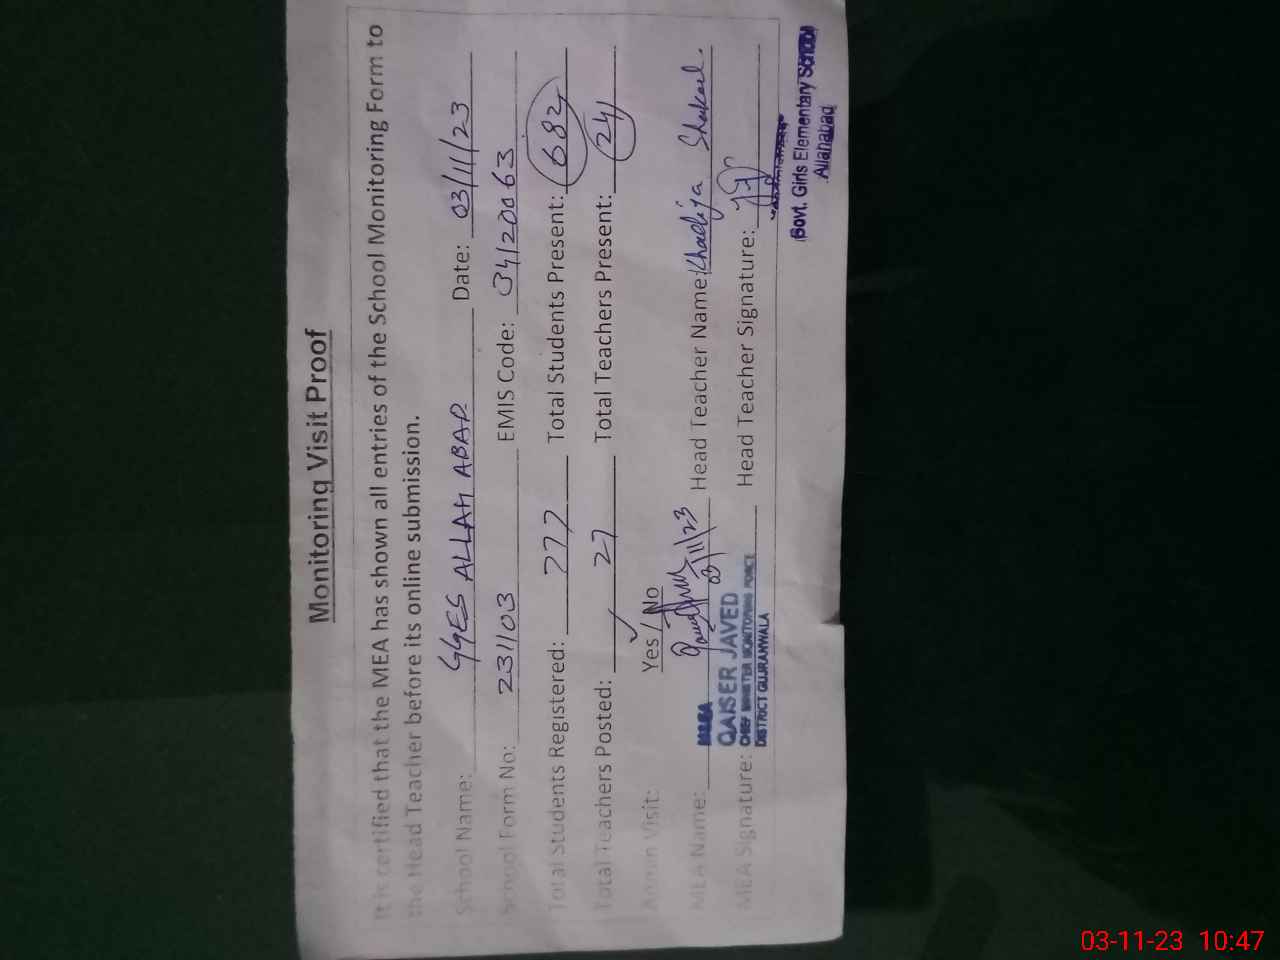 Monitoring Visit Proof
It is certified that the MEA has shown all entries of the School Monitoring Form to
the Head Teacher before its online submission.
School Name: GGES ALLAH ABAD Date: 03/11/23
School Form No: 231103 EMIS Code: 34120063
Total Students Registered: 777 Total Students Present: 682
Total Teachers Posted: 27 Total Teachers Present: 24
Admin Visit: Yes / No
MEA Name: Head Teacher Name: Khadija Shakeel.
03/11/23
MEA Signature: Head Teacher Signature:
M&EA
QAISER JAVED
CHIEF MINISTER MONITORING FORCE
DISTRICT GUJRANWALA
Govt. Girls Elementary School
Allahabad
03-11-23 10:47